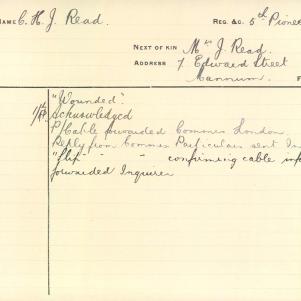 NAME C. H. J. Read. REG. &C. 5th Pione
NEXT OF KIN Mrs J. Read.
ADDRESS 7 Edward Street
Mannum. F
"Wounded".
Acknowledged
P/Cable forwarded Commrs London.
Reply from Commrs Particulars sent In
"flip" " " confirming cable inf
forwarded Inquirer